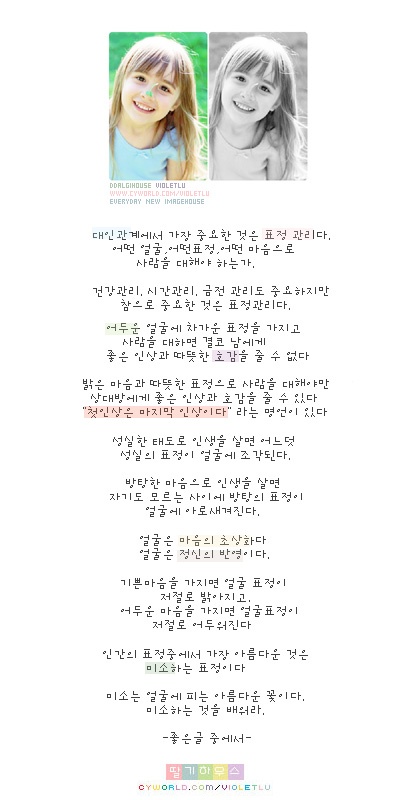 DDALGIHOUSE VIOLETLU
WWW.CYWORLD.COM/VIOLETLU
EVERYDAY NEW IMAGEHOUSE
대인관계에서 가장 중요한 것은 표정 관리다.
어떤 얼굴,어떤표정,어떤 마음으로
사람을 대해야 하는가.
건강관리, 시간관리, 금전 관리도 중요하지만
참으로 중요한 것은 표정관리다.
어두운 얼굴에 차가운 표정을 가지고
사람을 대하면 결코 남에게
좋은 인상과 따뜻한 호감을 줄 수 없다
밝은 마음과 따뜻한 표정으로 사람을 대해야만
상대방에게 좋은 인상과 호감을 줄 수 있다
"첫인상은 마지막 인상이다" 라는 명언이 있다
성실한 태도로 인생을 살면 어느덧
성실의 표정이 얼굴에 조각된다.
방탕한 마음으로 인생을 살면
자기도 모르는 사이에 방탕의 표정이
얼굴에 아로새겨진다.
얼굴은 마음의 초상화다
얼굴은 정신의 반영이다.
기쁜마음을 가지면 얼굴 표정이
저절로 밝아지고,
어두운 마음을 가지면 얼굴표정이
저절로 어두워진다
인간의 표정중에서 가장 아름다운 것은
미소하는 표정이다
미소는 얼굴에 피는 아름다운 꽃이다.
미소하는 것을 배워라.
-좋은글 중에서-
딸기하우스
CYWORLD.COM/VIOLETLU